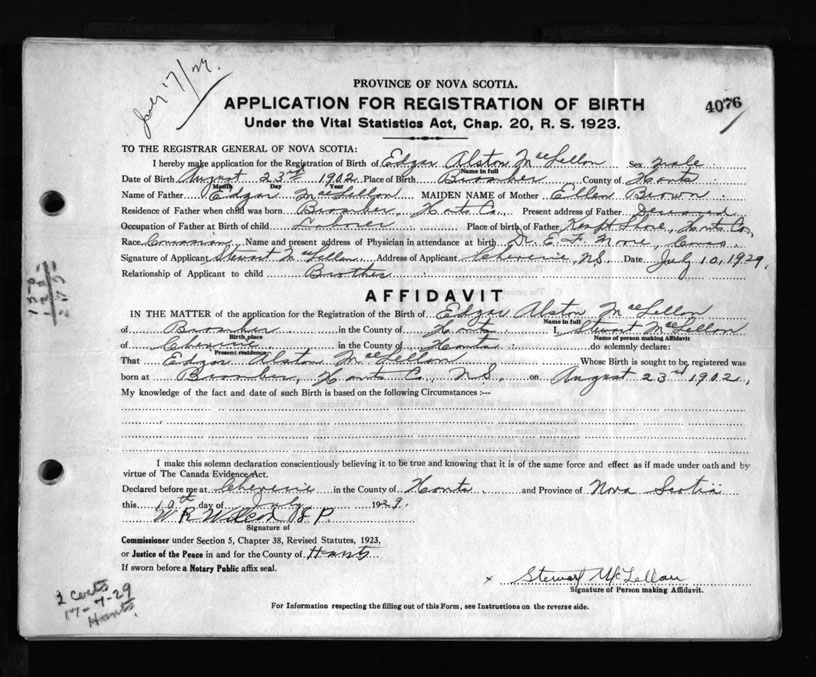 July 17/29.
PROVINCE OF NOVA SCOTIA.
4076
APPLICATION FOR REGISTRATION OF BIRTH
Under the Vital Statistics Act, Chap. 20, R. S. 1923.
TO THE REGISTRAR GENERAL OF NOVA SCOTIA:
I hereby make application for the Registration of Birth of Edgar Alston McLellon Sex male
Name in full
Date of Birth August 23rd 1902 Place of Birth Bramber County of Hants
Month Day Year
Name of Father Edgar McLellon MAIDEN NAME of Mother Ellen Brown
Residence of Father when child was born Bramber, Hants Co. Present address of Father Deceased
Occupation of Father at Birth of child Laborer Place of birth of Father Kempt Shore, Hants Co,
Race Caucasian Name and present address of Physician in attendance at birth Dr. E. F. Moore,
Signature of Applicant Stewart McLellan Address of Applicant Cheverie, N.S. Date July 10, 1929.
Relationship of Applicant to child Brother
AFFIDAVIT
IN THE MATTER of the application for the Registration of the Birth of Edgar Alston McLellon
Name in full
of Bramber in the County of Hants I, Stewart McLellon
Birth place Name of person making Affidavit
of Cheverie in the County of Hants do solemnly declare:
Present residence
That Edgar Alston McLellon Whose Birth is sought to be registered was
born at Bramber, Hants Co., N.S. on August 23rd 1902,
My knowledge of the fact and date of such Birth is based on the following Circumstances :—
I make this solemn declaration conscientiously believing it to be true and knowing that it is of the same force and effect as if made under oath and by
virtue of The Canada Evidence Act.
Declared before me at Cheverie in the County of Hants and Province of Nova Scotia
this 10th day of July 1929.
W R J P.
Signature of
Commissioner under Section 5, Chapter 38, Revised Statutes, 1923,
or Justice of the Peace in and for the County of Hants
If sworn before a Notary Public affix seal.
x Stewart McLellan
Signature of Person making Affidavit.
2 Certs
17-7-29
Hants.
For Information respecting the filling out of this Form, see Instructions on the reverse side.